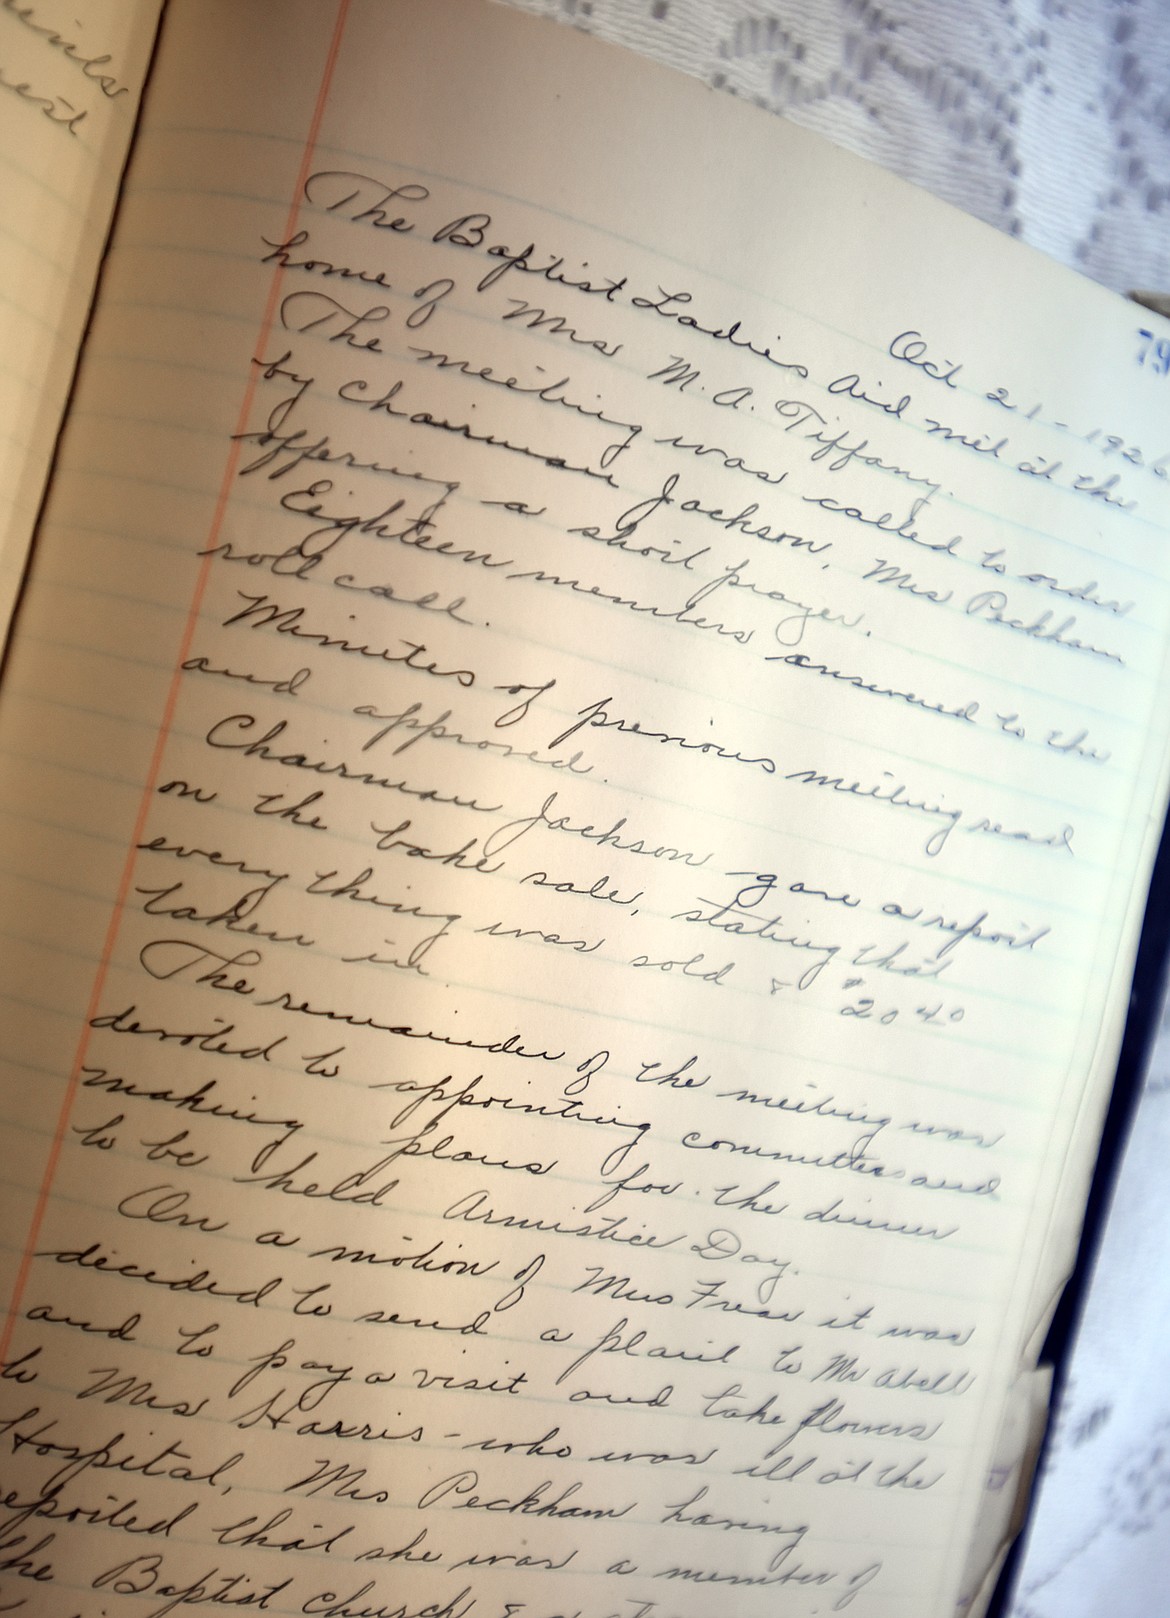 79
Oct 21 - 192
The Baptist Ladies Aid met at the
home of Mrs M. A. Tiffany.
The meeting was called to order
by Chairman Jackson, Mrs Peckham
offering a short prayer.
Eighteen members answered to the
roll call.
Minutes of previous meeting read
and approved.
Chairman Jackson gave a report
on the bake sale, stating that
every thing was sold & $20 40
taken in.
The remainder of the meeting was
devoted to appointing committees and
making plans for the dinner
to be held Armistice Day.
On a motion of Mrs it was
decided to send a plant to Mr Abell
and to pay a visit and take flowers
to Mrs Harris - who was ill at the
Hospital, Mrs Peckham having
reported that she was a member of
the Baptist church &